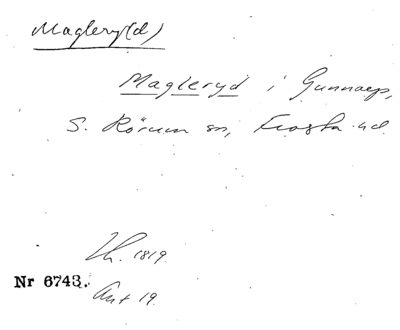 Maglery(d)
Magleryd i Gunnarp,
S. Rörum sn, Frosta hd.
Th. 1819.
Nr 6743.
Ant 19.